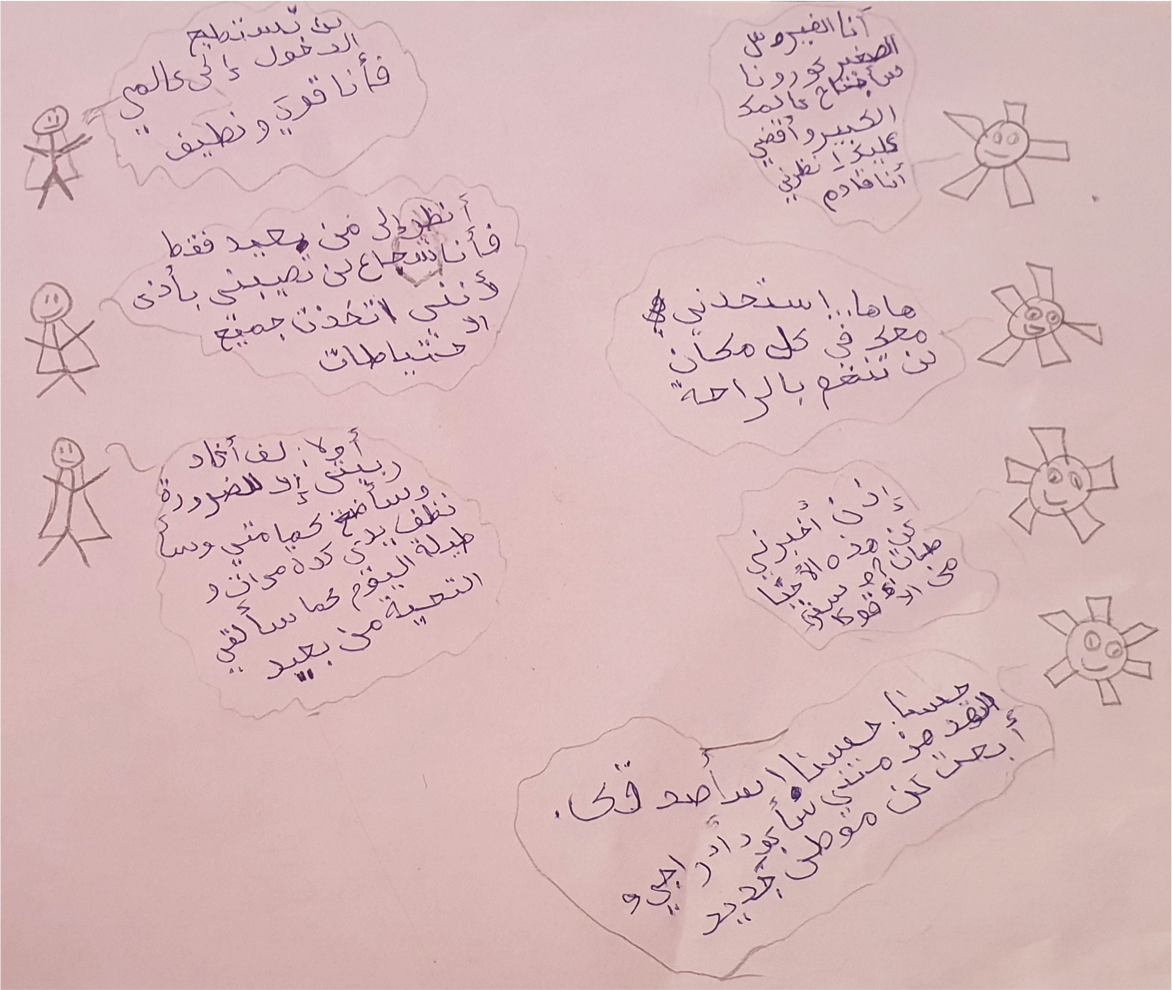 أنا الفيروس
الصغير كورونا
سأجتاح عالمك
الكبير وأقضي
عليك إنظرني
أنا قادم
لن تستطيع
الدخول إلى عالمي
فأنا قوي و نظيف
هاها..! ستجدني
معك في كل مكان
لن تنعم بالراحة
أنظر إلي من بعيد فقط
فأنا شجاع لن تصيبني بأذى
لأنني اتخذت جميع
الاحتياطات
إذن أخبرني
عن هذه الاحتيا
طات
من
أولا: لن أغاد
ر بيتي إلا للضرورة
وسأضع كمامتي وسأ
نظف يدي عدة مرات و
طيلة اليوم كما سألقي
التحية من بعيد
حسنا حسنا
لقد هزمتني سأعود أدراجي و
أبحث عن موطن جديد